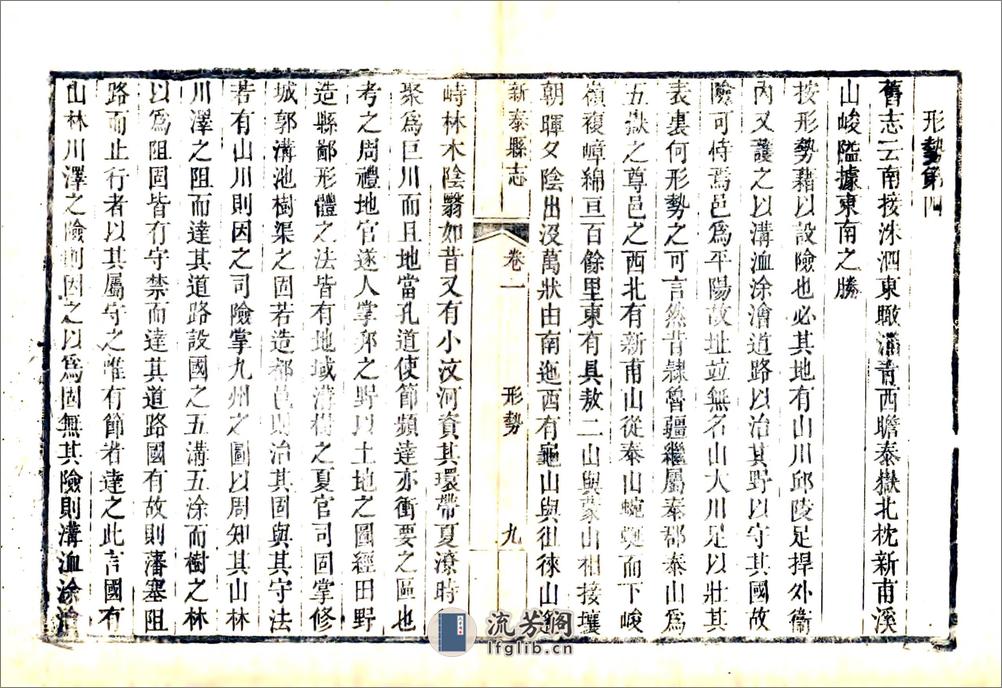 形勢第四
舊志云南按洙泗東瞰瀛青西瞻泰嶽北枕新甫溪
山峻隘據東南之勝
按形勢藉以設險也必其地有山川邱陵足捍外衛
內又護之以溝洫涂澮道路以治其野以守其國故
險可恃焉邑爲平陽故址竝無名山大川足以壯其
表裏何形勢之可言然昔隸魯疆繼屬泰郡泰山爲
五嶽之尊邑之西北有新甫山從泰山蜿蜒而下峻
嶺複嶂綿亘百餘里東有具敖二山與蒙山相接壤
朝暉夕陰出沒萬狀由南迤西有龜山與徂徠山
新泰縣志
卷一
形勢
九
峙林木陰翳如昔又有小汶河資其環帶夏潦時
聚爲巨川而且地當孔道使節頻達亦衝要之區也
考之周禮地官遂人掌邦之野以土地之圖經田野
造縣鄙形體之法皆有地域溝樹之夏官司固掌修
城郭溝池樹渠之固若造都邑則治其固與其守法
若有山川則因之司險掌九州之圖以周知其山林
川澤之阻而達其道路設國之五溝五涂而樹之林
以爲阻固皆有守禁而達其道路國有故則藩塞阻
路而止行者以其屬守之惟有節者達之此言國有
山林川澤之險則因之以爲固無其險則溝洫涂澮
流芳閣
lfglib.cn